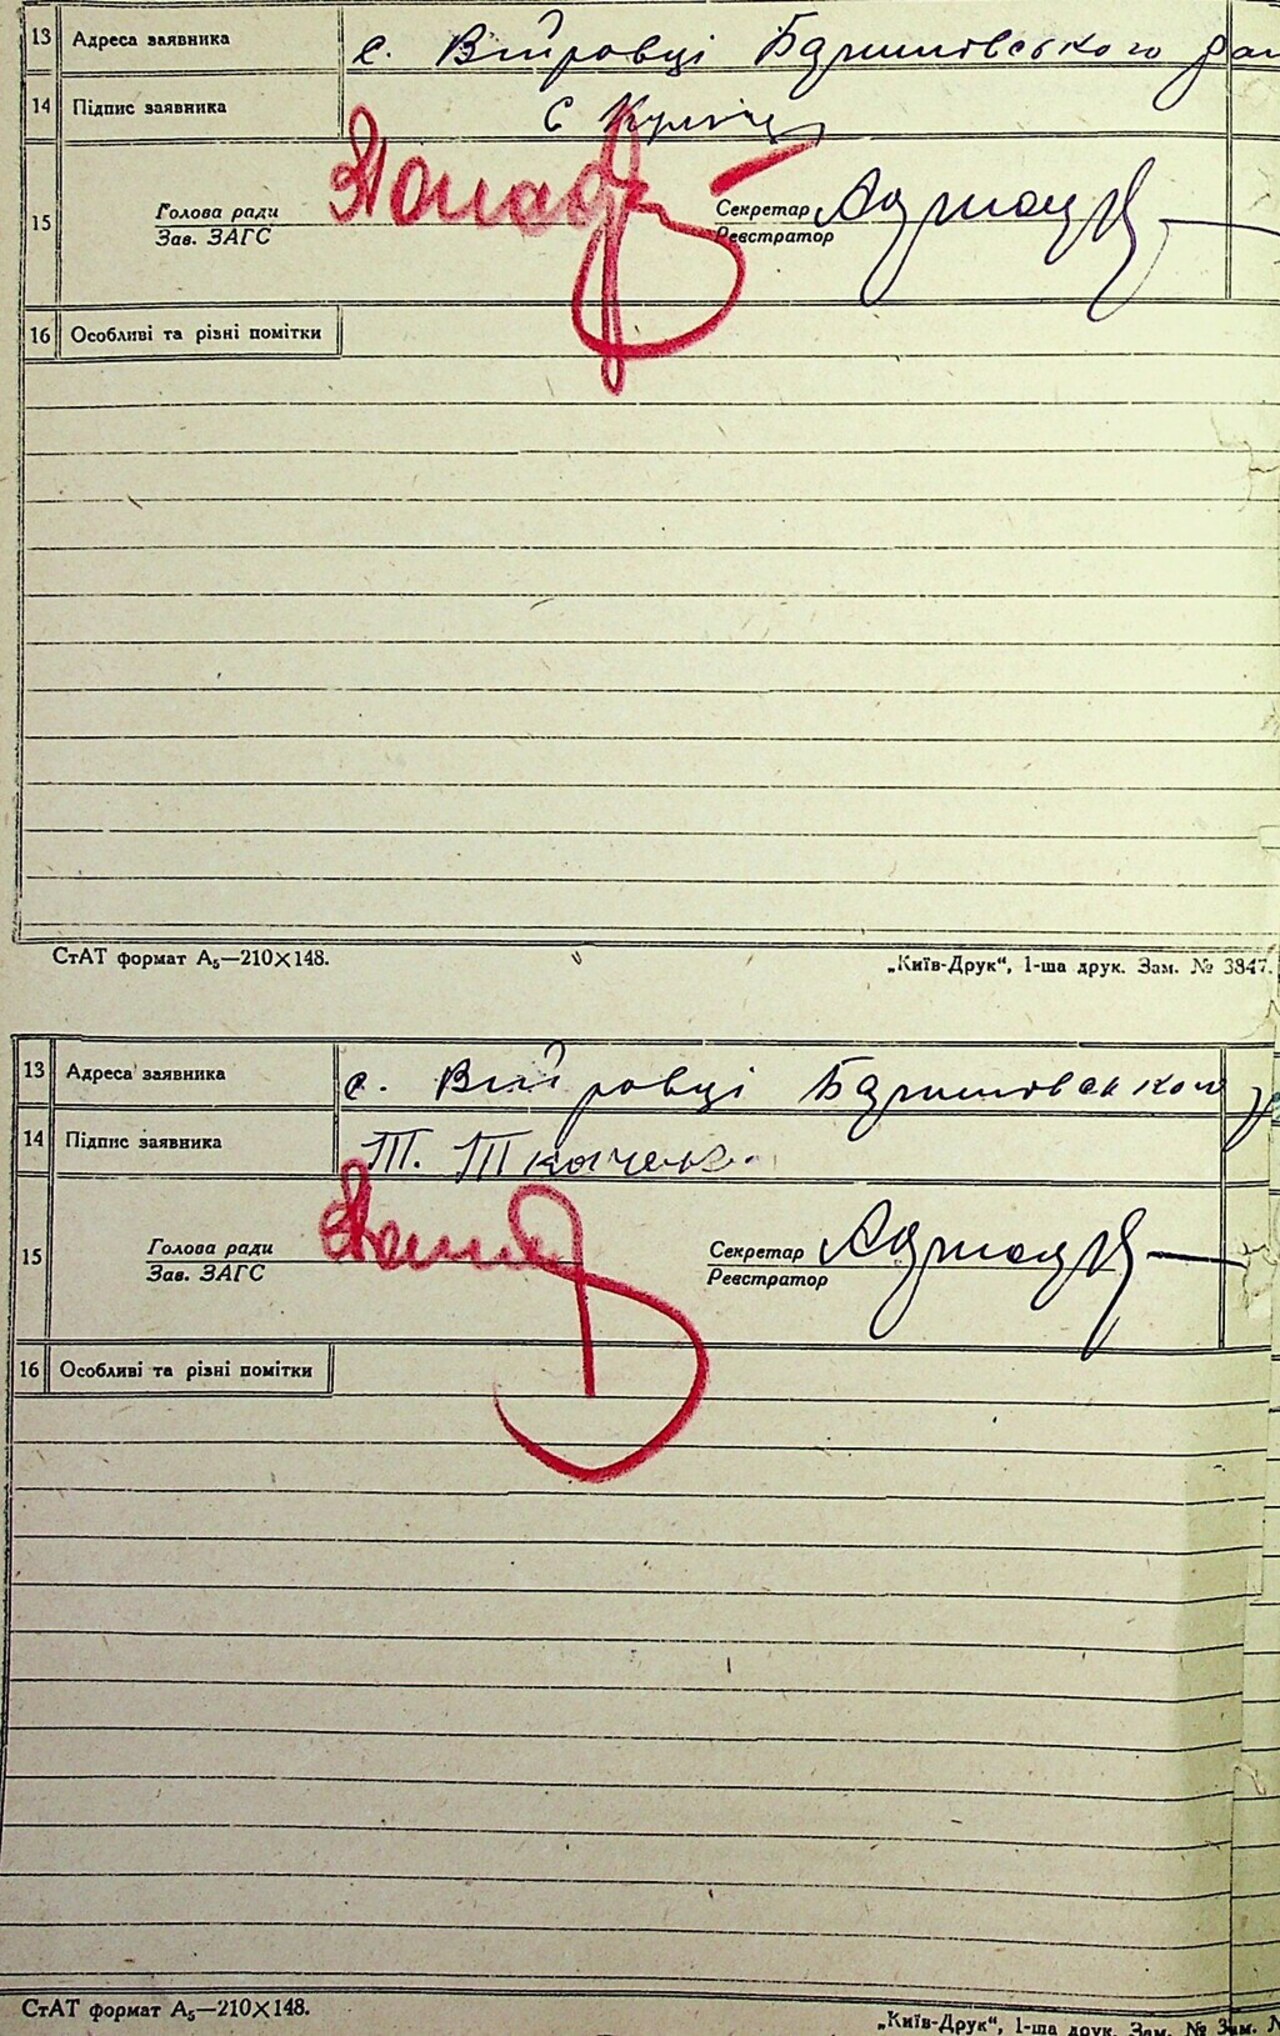 13 Адреса заявника с. Війтовці Баришівського
14 Підпис заявника
15 Голова ради Секретар
Зав. ЗАГС Реєстратор
16 Особливі та різні помітки
СтАТ формат А₅—210×148. „Київ-Друк“, 1-ша друк. Зам. № 3847.
13 Адреса заявника с. Війтовці Баришівського
14 Підпис заявника Т. Ткаченко
15 Голова ради Секретар
Зав. ЗАГС Реєстратор
16 Особливі та різні помітки
СтАТ формат А₅—210×148. „Київ-Друк“, 1-ша друк. Зам. №